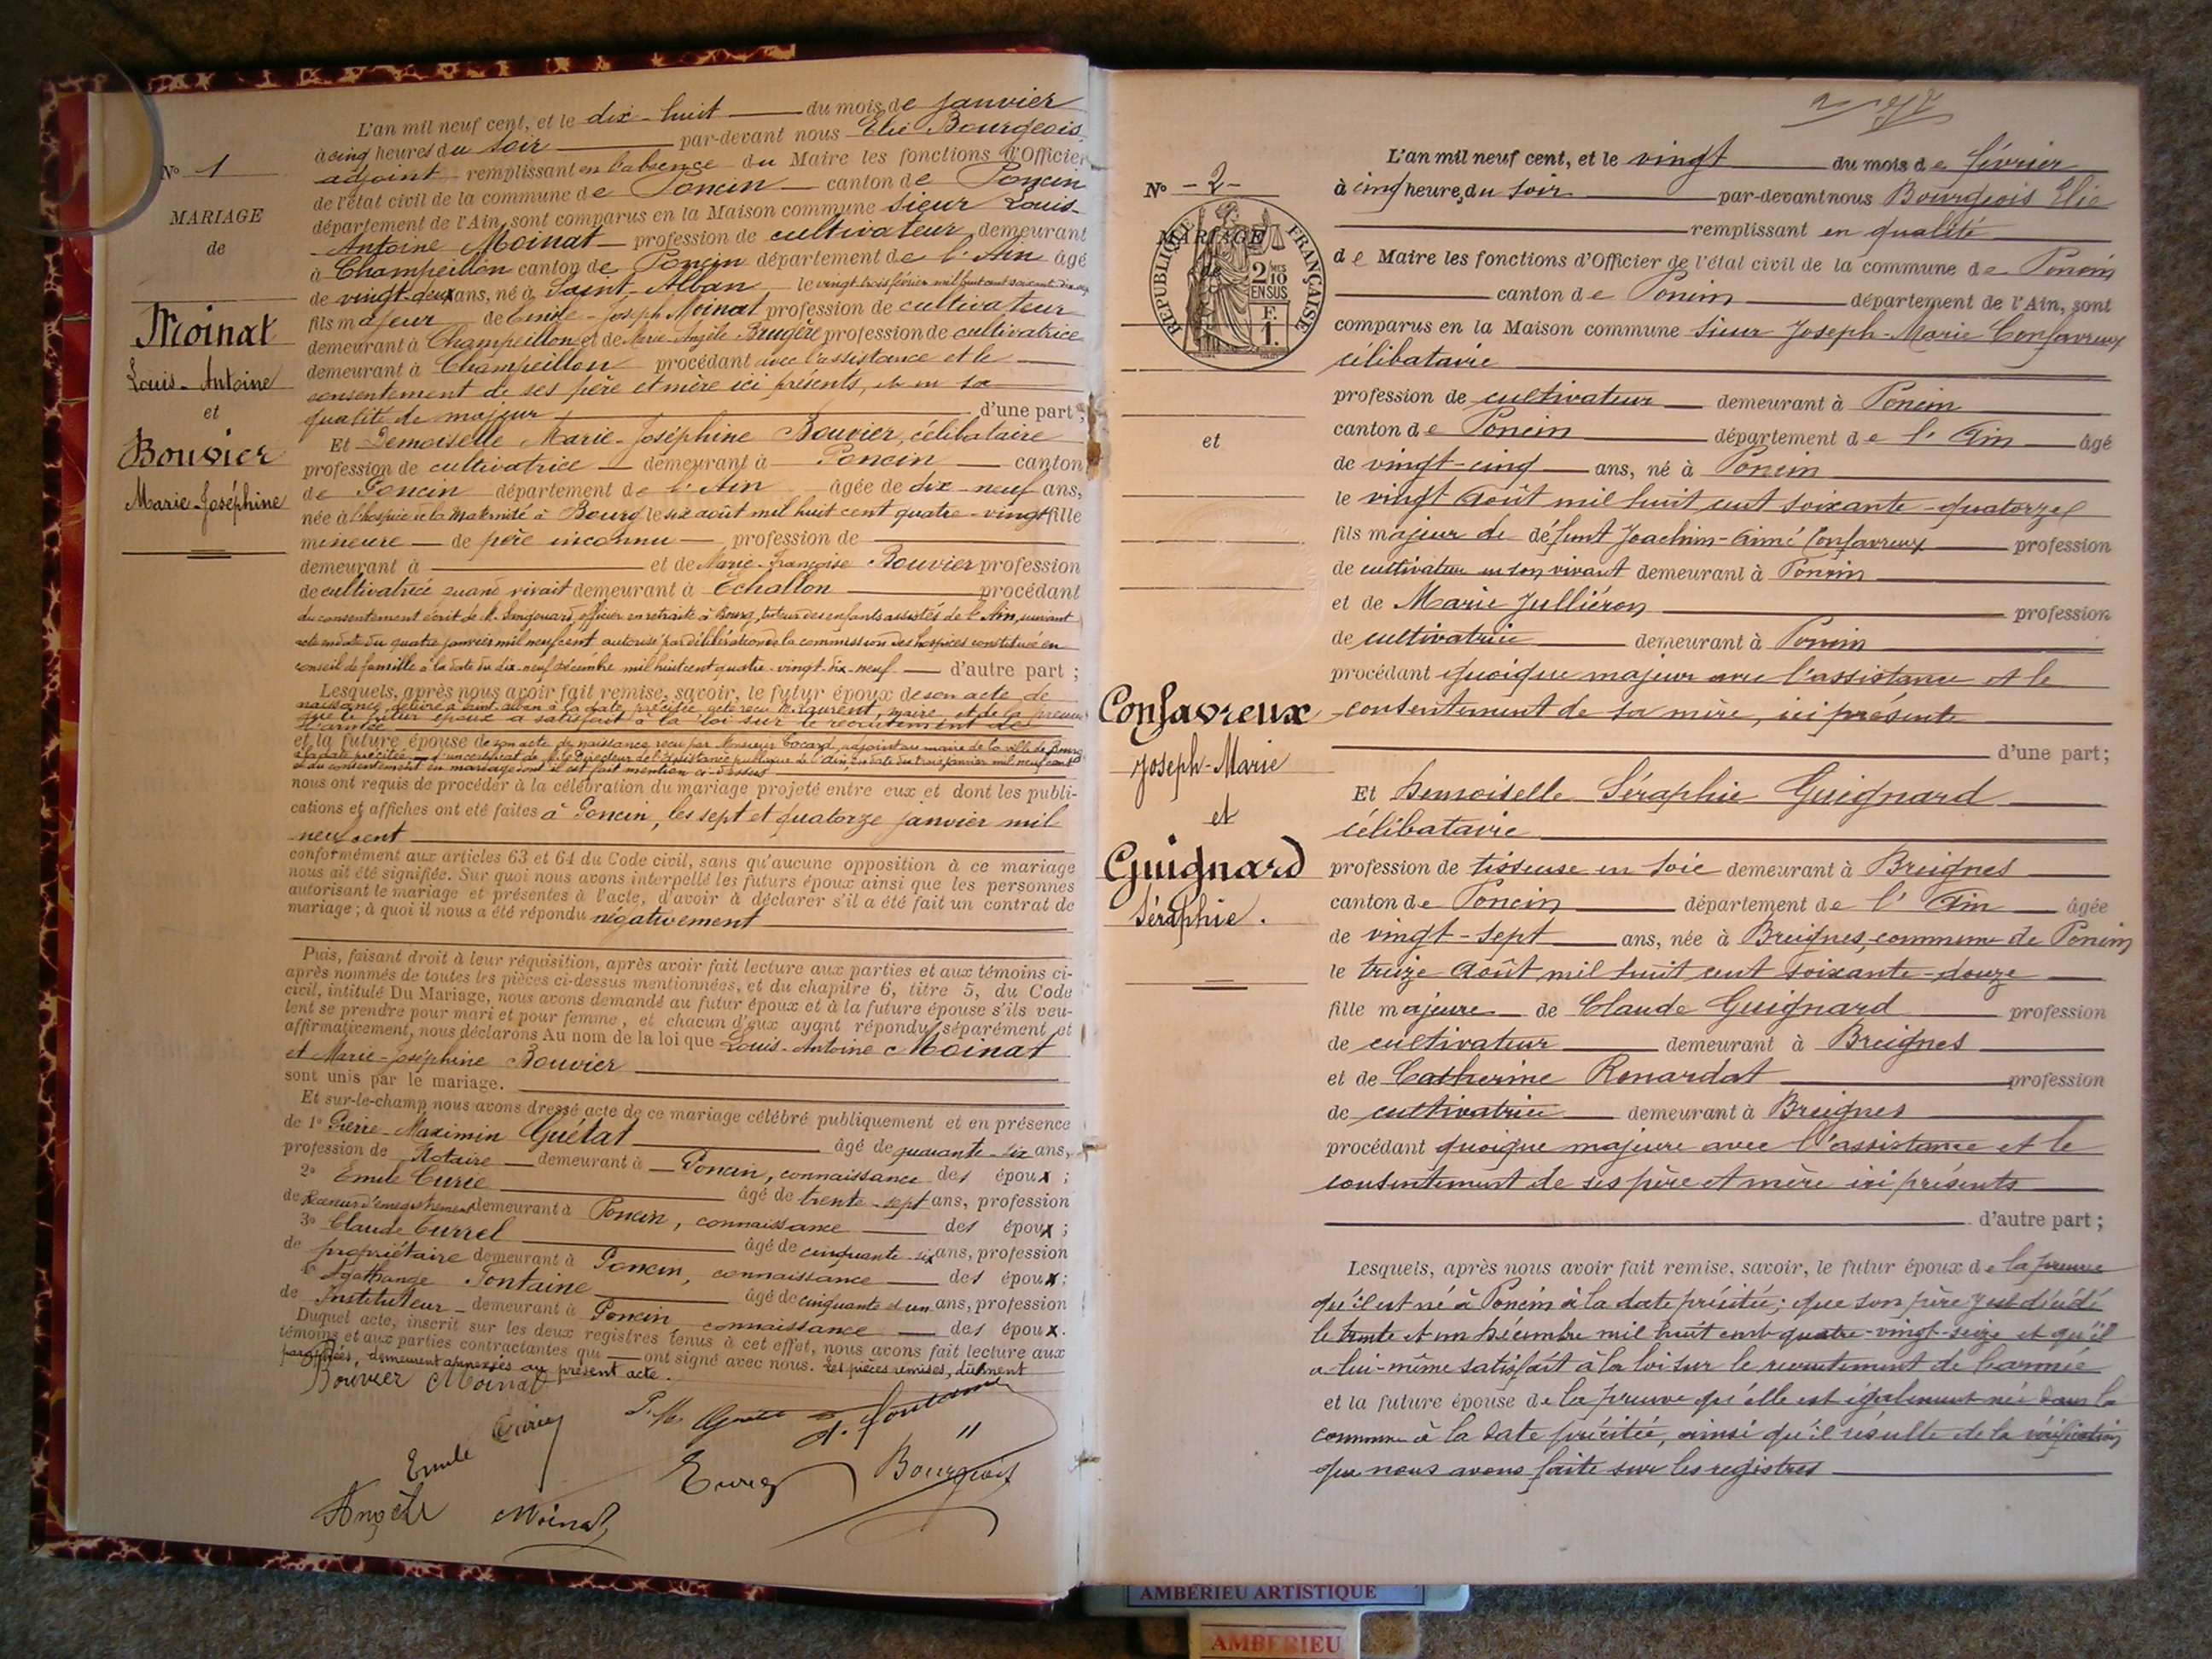 L'an mil neuf cent, et le dix-huit du mois de janvier
à cinq heures du soir par-devant nous Elie Bourgeois
adjoint remplissant en l'absence du Maire les fonctions d'Officier
de l'état civil de la commune de Poncin canton de Poncin
département de l'Ain, sont comparus en la Maison commune sieur Louis-
Antoine Moinat profession de cultivateur demeurant
à Champeillon canton de Poncin département de l'Ain âgé
de vingt-deux ans, né à Saint-Alban le vingt trois février mil huit cent soixante dix sept
fils majeur de Emile-Joseph Moinat profession de cultivateur
demeurant à Champeillon et de Marie-Angèle Brugère profession de cultivatrice
demeurant à Champeillon procédant avec l'assistance et le
consentement de ses père et mère ici présents, et en sa
qualité de majeur d'une part ;
Et Demoiselle Marie-Joséphine Bouvier, célibataire
profession de cultivatrice demeurant à Poncin canton
de Poncin département de l'Ain âgée de dix-neuf ans,
née à l'hospice de la Maternité à Bourg le six août mil huit cent quatre-vingt fille
mineure de père inconnu profession de
demeurant à et de Marie-Françoise Bouvier profession
de cultivatrice quand vivait demeurant à Echallon procédant
du consentement écrit de M. officier en retraite à Bourg, tuteur des enfants assistés de l'Ain, suivant
acte en date du quatre janvier mil neuf cent autorisé par délibération de la commission des hospices constituée en
conseil de famille à la date du dix-neuf décembre mil huit cent quatre-vingt-dix-neuf d'autre part ;
Lesquels, après nous avoir fait remise, savoir, le futur époux de son acte de
naissance, délivré à Saint-Alban à la date précitée acte reçu Mr Laurent, maire et de la preuve
que le futur époux a satisfait à la loi sur le recrutement de
l'armée
et la future épouse de son acte de naissance reçu par Monsieur Cocard, adjoint au maire de la ville de Bourg
à la date précitée d'un certificat de M. le Directeur de l'Assistance publique de l'Ain, en date du trois janvier mil neuf cent
et du consentement en mariage dont il est fait mention ci-dessus
nous ont requis de procéder à la célébration du mariage projeté entre eux et dont les publi-
cations et affiches ont été faites à Poncin, les sept et quatorze janvier mil
neuf cent
conformément aux articles 63 et 64 du Code civil, sans qu'aucune opposition à ce mariage
nous ait été signifiée. Sur quoi nous avons interpellé les futurs époux ainsi que les personnes
autorisant le mariage et présentes à l'acte, d'avoir à déclarer s'il a été fait un contrat de
mariage ; à quoi il nous a été répondu négativement
Puis, faisant droit à leur réquisition, après avoir fait lecture aux parties et aux témoins ci-
après nommés de toutes les pièces ci-dessus mentionnées, et du chapitre 6, titre 5, du Code
civil, intitulé Du Mariage, nous avons demandé au futur époux et à la future épouse s'ils veu-
lent se prendre pour mari et pour femme, et chacun d'eux ayant répondu séparément et
affirmativement, nous déclarons Au nom de la loi que Louis-Antoine Moinat
et Marie-Joséphine Bouvier
sont unis par le mariage.
Et sur-le-champ nous avons dressé acte de ce mariage célébré publiquement et en présence
de 1° Pierre-Maximin Guétat âgé de quarante-six ans,
profession de Notaire demeurant à Poncin, connaissance des époux ;
2° Emile Curie âgé de trente-sept ans, profession
de Receveur d'enregistrement demeurant à Poncin, connaissance des époux ;
3° Claude Currel âgé de cinquante-six ans, profession
de propriétaire demeurant à Poncin, connaissance des époux ;
4° Agathange Fontaine âgé de cinquante et un ans, profession
de Instituteur demeurant à Poncin connaissance des époux.
Duquel acte, inscrit sur les deux registres tenus à cet effet, nous avons fait lecture aux
témoins et aux parties contractantes qui ont signé avec nous. Les pièces remises, dûment
paraphées, demeurent annexées au présent acte.
Bouvier Moinat
P. M. A. Fontaine
Emile
Bourgeois
Angèle Moinat
N° 1
MARIAGE
de
Moinat
Louis-Antoine
et
Bouvier
Marie-Joséphine
L'an mil neuf cent, et le vingt du mois de février
à cinq heures du soir par-devant nous Bourgeois Elie
remplissant en qualité
de Maire les fonctions d'Officier de l'état civil de la commune de Poncin
canton de Poncin département de l'Ain, sont
comparus en la Maison commune sieur Joseph-Marie Confavreux
célibataire
profession de cultivateur demeurant à Poncin
canton de Poncin département de l'Ain âgé
de vingt-cinq ans, né à Poncin
le vingt août mil huit cent soixante-quatorze
fils majeur de défunt Joachim-Aimé Confavreux profession
de cultivateur en son vivant demeurant à Poncin
et de Marie Julliéron profession
de cultivatrice demeurant à Poncin
procédant quoique majeur avec l'assistance et le
consentement de sa mère, ici présente
d'une part ;
Et Demoiselle Séraphie Guignard
célibataire
profession de tisseuse en soie demeurant à Breignes
canton de Poncin département de l'Ain âgée
de vingt-sept ans, née à Breignes, commune de Poncin
le treize août mil huit cent soixante-douze
fille majeure de Claude Guignard profession
de cultivateur demeurant à Breignes
et de Catherine Renardat profession
de cultivatrice demeurant à Breignes
procédant quoique majeure avec l'assistance et le
consentement de ses père et mère ici présents
d'autre part ;
Lesquels, après nous avoir fait remise, savoir, le futur époux de la preuve
qu'il est né à Poncin à la date précitée ; que son père y est décédé
le trente et un décembre mil huit cent quatre-vingt-seize et qu'il
a lui-même satisfait à la loi sur le recrutement de l'armée
et la future épouse de la preuve qu'elle est également née dans la
commune à la date précitée, ainsi qu'il résulte de la vérification
que nous avons faite sur les registres
N° -2-
MARIAGE
de
RÉPUBLIQUE FRANÇAISE
2 MES
10
EN SUS
F.
1.
et
Confavreux
Joseph-Marie
et
Guignard
Séraphie.
AMBERIEU ARTISTIQUE
AMBERIEU